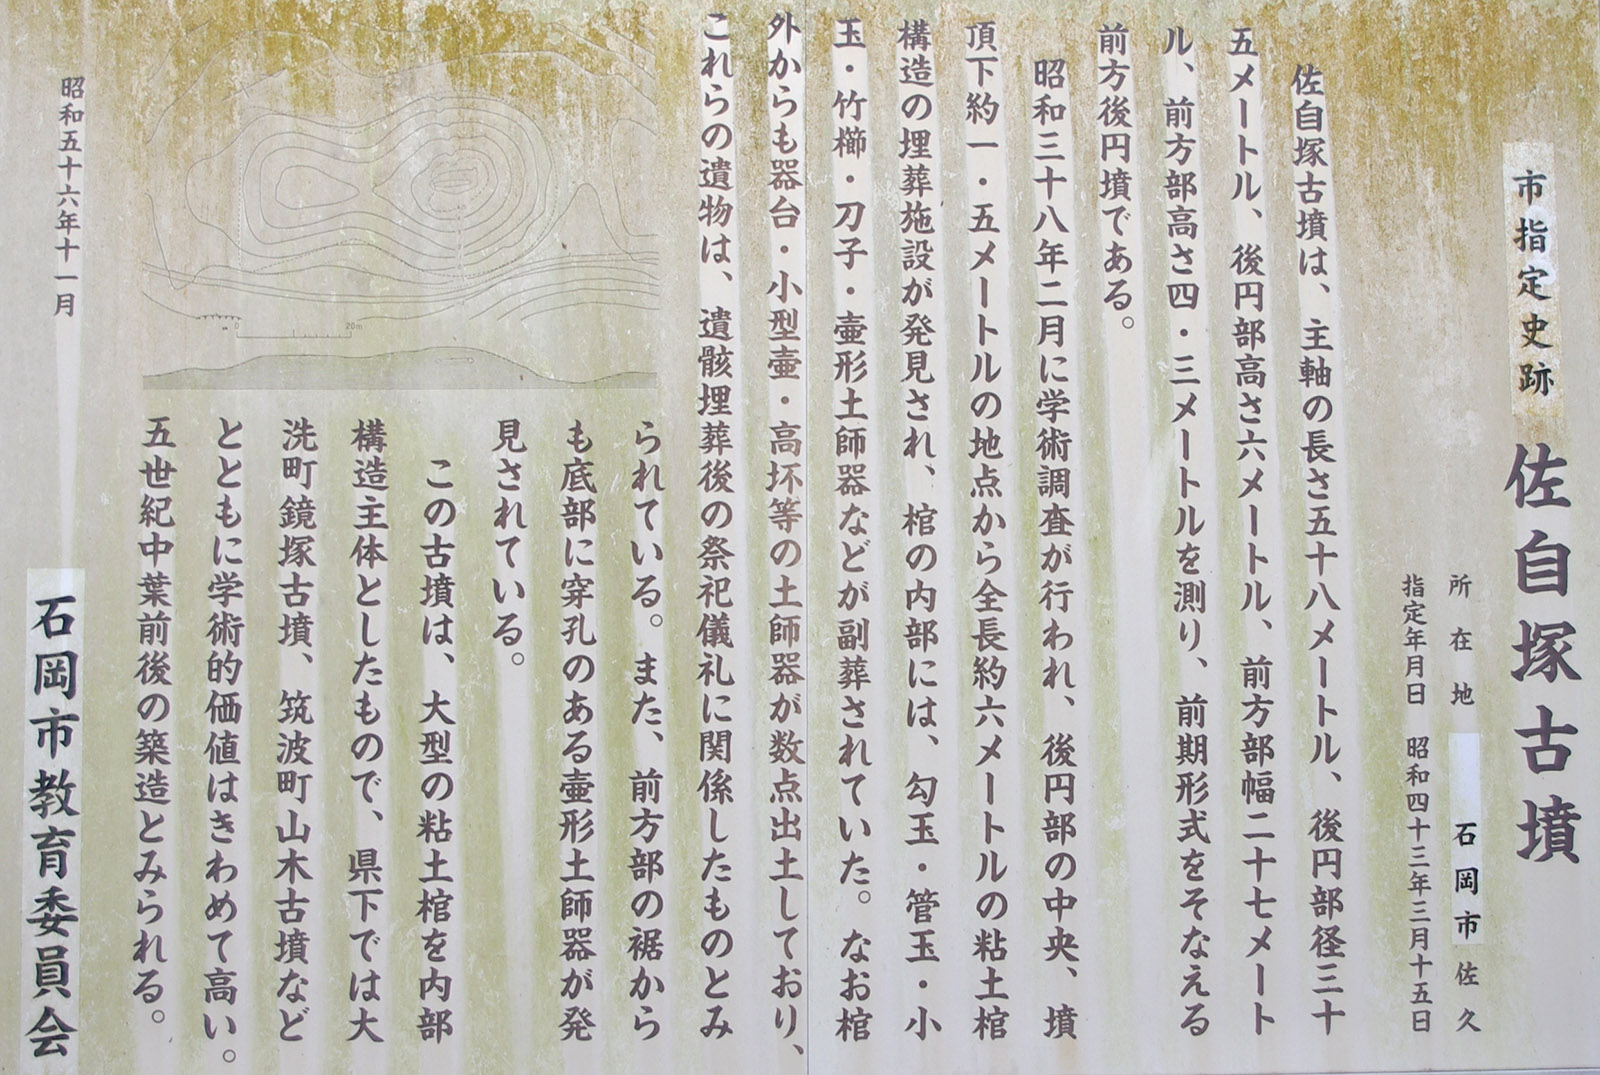 市指定史跡 佐自塚古墳
所在地 石岡市佐久
指定年月日 昭和四十三年三月十五日
佐自塚古墳は、主軸の長さ五十八メートル、後円部径三十
五メートル、後円部高さ六メートル、前方部幅二十七メート
ル、前方部高さ四・三メートルを測り、前期形式をそなえる
前方後円墳である。
昭和三十八年二月に学術調査が行われ、後円部の中央、墳
頂下約一・五メートルの地点から全長約六メートルの粘土棺
構造の埋葬施設が発見され、棺の内部には、勾玉・管玉・小
玉・竹櫛・刀子・壷形土師器などが副葬されていた。なお棺
外からも器台・小型壷・高坏等の土師器が数点出土しており、
これらの遺物は、遺骸埋葬後の祭祀儀礼に関係したものとみ
られている。また、前方部の裾から
も底部に穿孔のある壷形土師器が発
見されている。
この古墳は、大型の粘土棺を内部
構造主体としたもので、県下では大
洗町鏡塚古墳、筑波町山木古墳など
とともに学術的価値はきわめて高い。
五世紀中葉前後の築造とみられる。
0 20m
昭和五十六年十一月
石岡市教育委員会